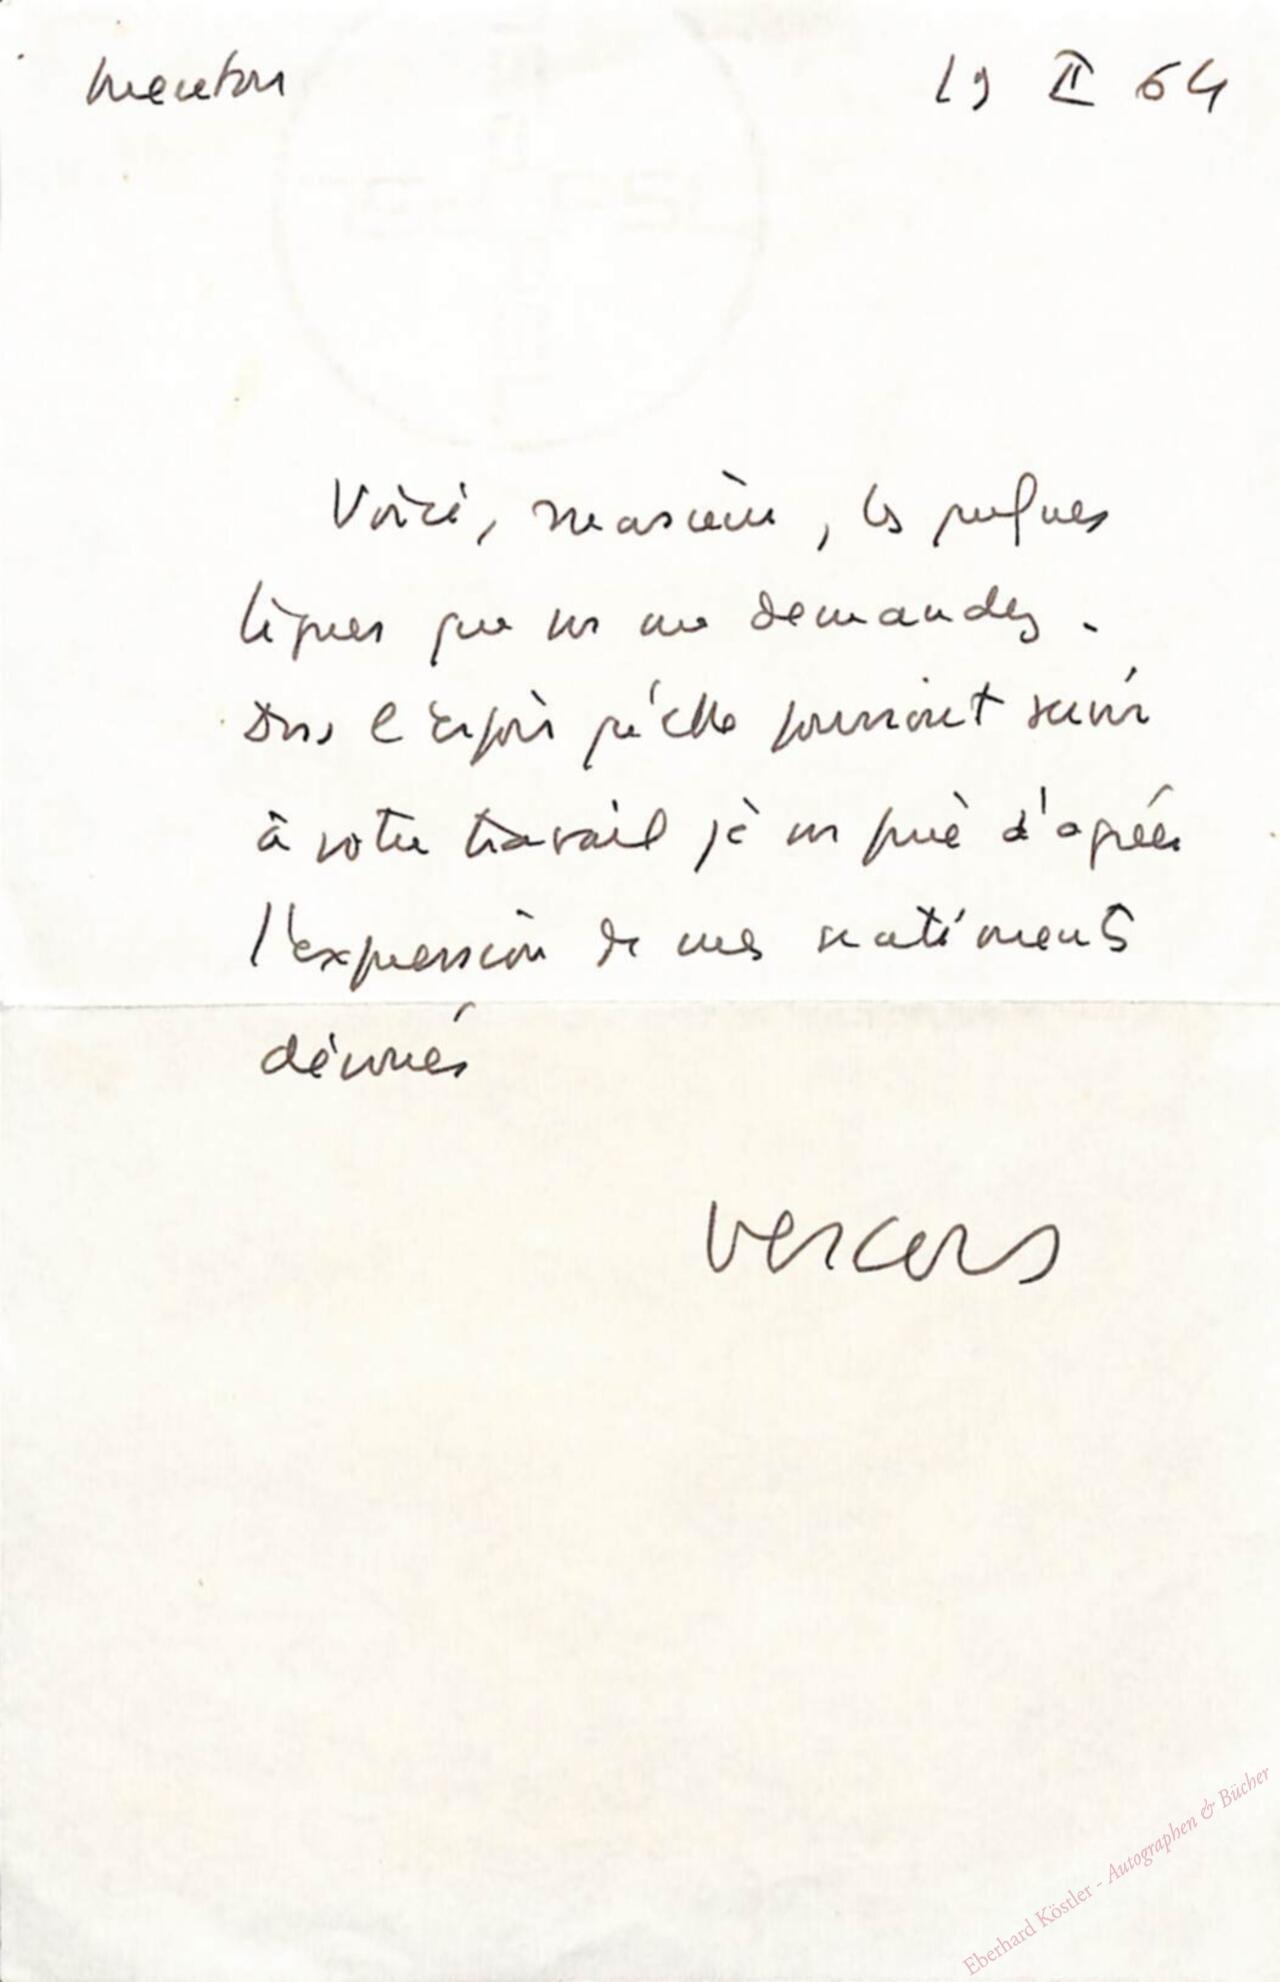 Menton 19 II 64
Voici, monsieur, les quelques
lignes que vs me demandez.
Dans l'espoir qu'elles pourront servir
à votre travail je vs prie d'agréer
l'expression de mes sentiments
dévoués
Vercors
Eberhard Köstler - Autographen & Bücher